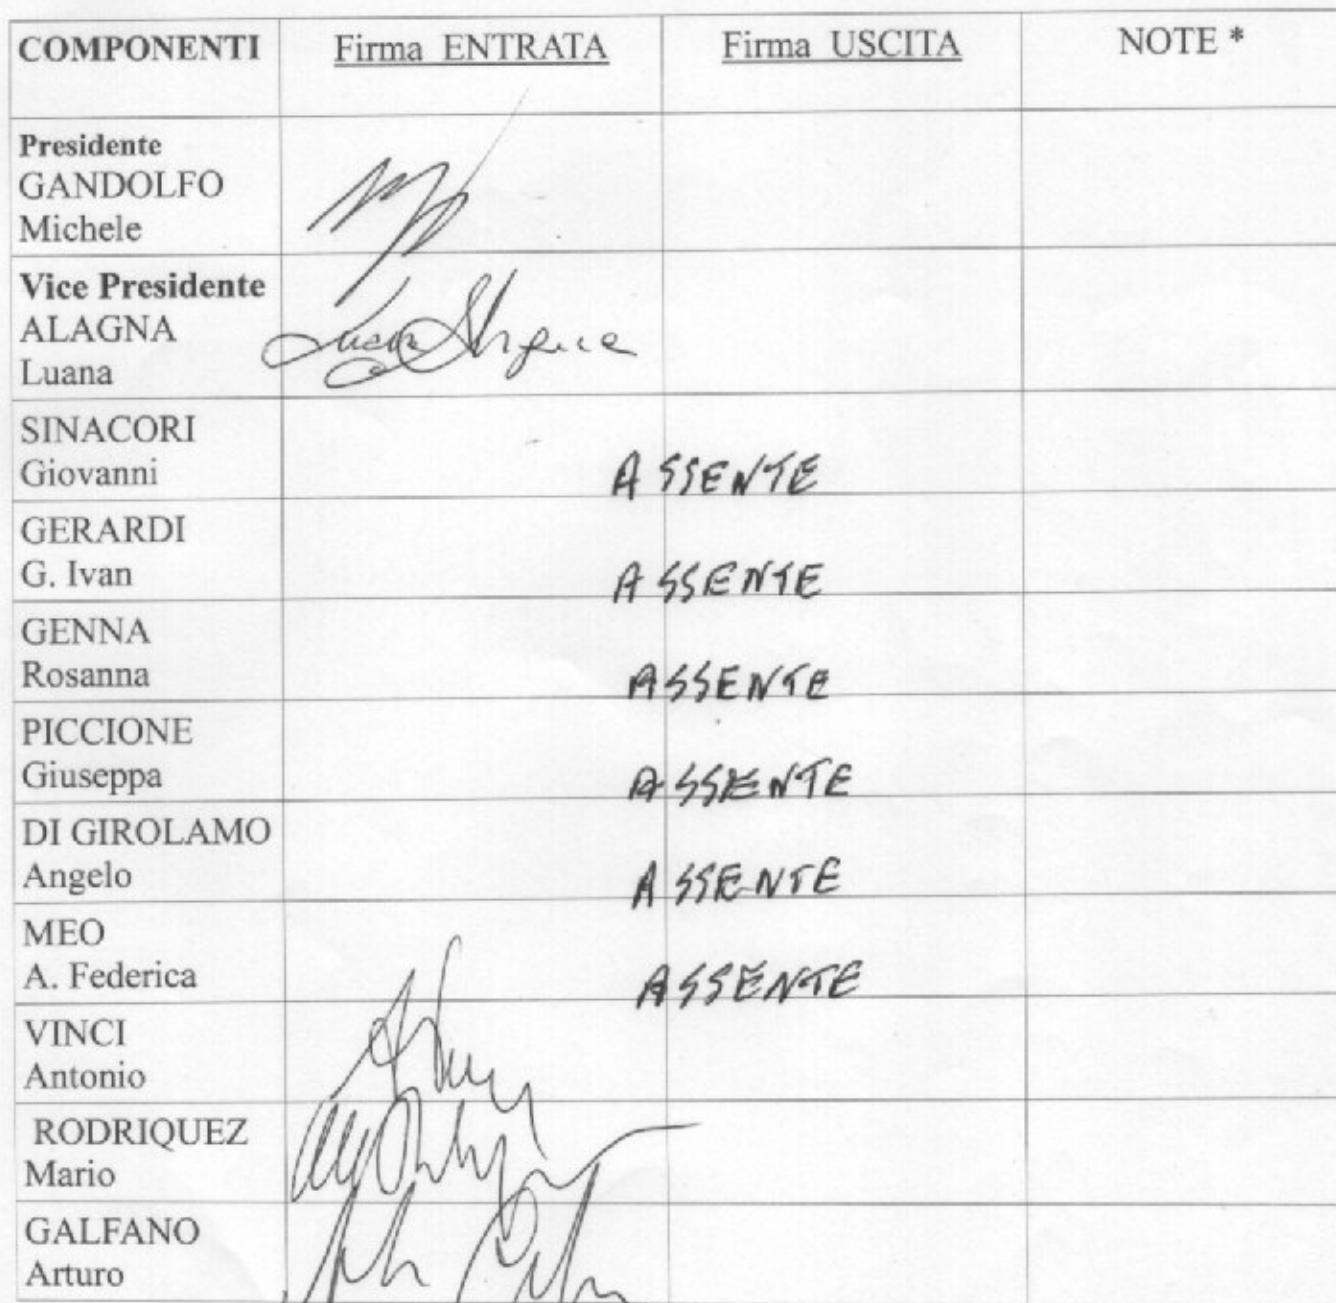 COMPONENTI Firma ENTRATA Firma USCITA NOTE *
Presidente
GANDOLFO
Michele
Vice Presidente
ALAGNA
Luana
SINACORI
Giovanni ASSENTE
GERARDI
G. Ivan ASSENTE
GENNA
Rosanna ASSENTE
PICCIONE
Giuseppa ASSENTE
DI GIROLAMO
Angelo ASSENTE
MEO
A. Federica ASSENTE
VINCI
Antonio
RODRIQUEZ
Mario
GALFANO
Arturo